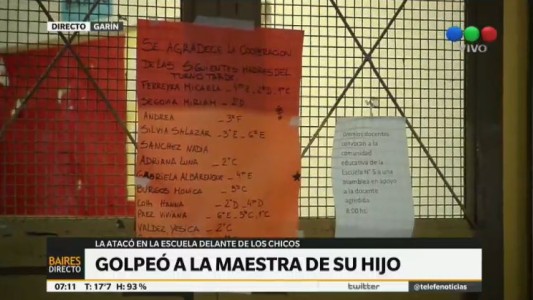 DIRECTO GARÍN
VIVO
SE AGRADECE LA COOPERACION
DE LAS SIGUIENTES MADRES DEL
TURNO TARDE:
FERREYRA MICAELA
SEGOVIA MIRIAM - 2°D
ANDREA - 3°F
SILVIA SALAZAR - 5°E - 6°E
SANCHEZ NADIA
ADRIANA LUNA - 2°C
GABRIELA ALBARENQUE - 4°E
BURGOS MONICA - 5°C
HANNA - 2°D, 4°D
PAEZ VIVIANA - 6°E, 5°C, 1°C
VALDEZ YESICA - 2°C
docentes
invitan a la
comunidad
educativa de la
Escuela N° 5 a una
asamblea en apoyo
a la docente
agredida
8:00 hs.
LA ATACÓ EN LA ESCUELA DELANTE DE LOS CHICOS
BAIRES
DIRECTO
GOLPEÓ A LA MAESTRA DE SU HIJO
07:11 T: 17°7 H: 93 % twitter @telefenoticias